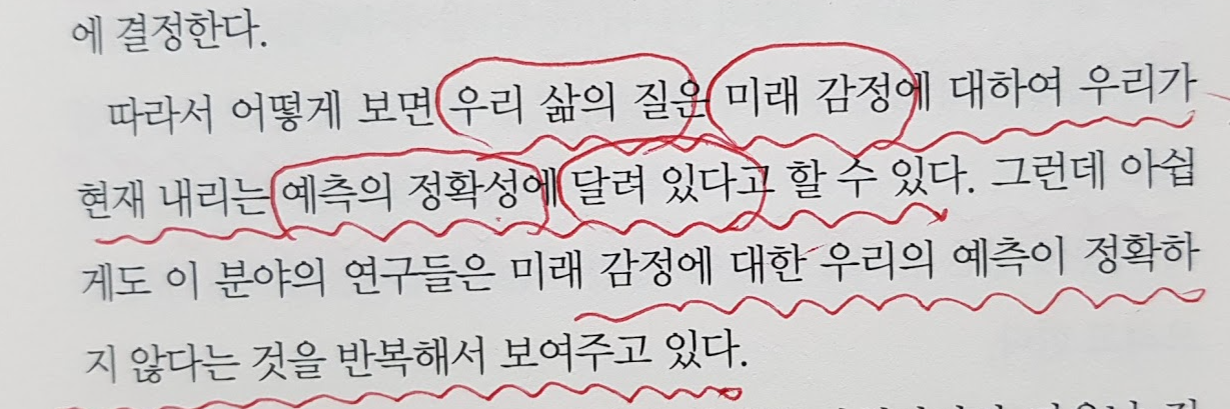 에 결정한다.
따라서 어떻게 보면 우리 삶의 질은 미래 감정에 대하여 우리가
현재 내리는 예측의 정확성에 달려 있다고 할 수 있다. 그런데 아쉽
게도 이 분야의 연구들은 미래 감정에 대한 우리의 예측이 정확하
지 않다는 것을 반복해서 보여주고 있다.